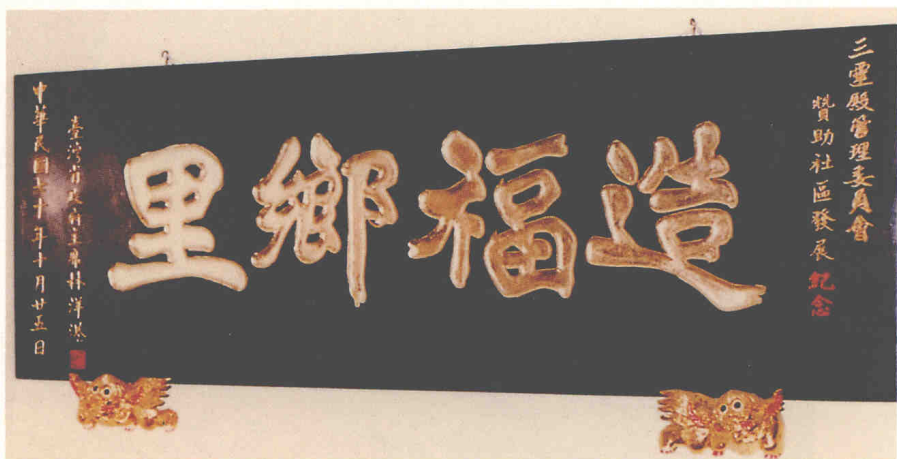 三靈殿管理委員會
贊助社區發展紀念
造福鄉里
臺灣省政府主席林洋港
中華民國七十年十月廿五日